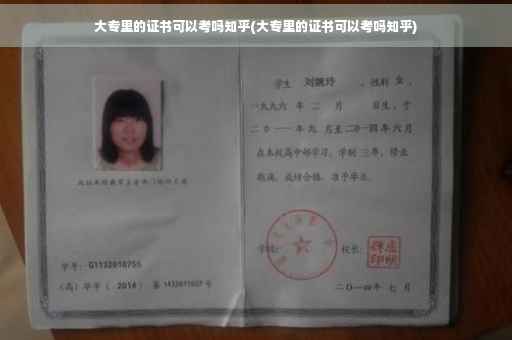 大专里的证书可以考吗知乎(大专里的证书可以考吗知乎)
学生 刘婉玲 ，性别 女 ，
一九九六 年 二 月 日生，于
二〇一一 年 九 月至 二〇一四 年 六 月
在本校高中部学习，学制 三 年，修业
期满，成绩合格，准予毕业。
学校：
校长：
二〇一四 年 七 月
学号： G1132010755
(高) 毕字 ( 2014 ) 第 1432011027 号